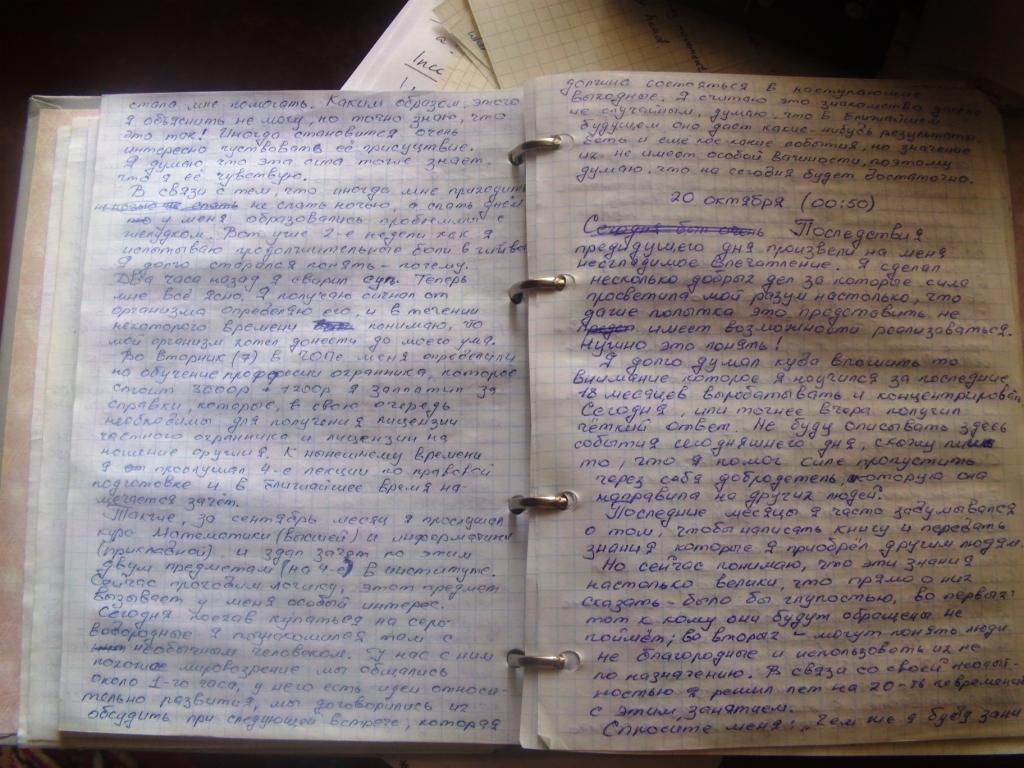 стала мне помогать. Каким образом, этого
я объяснить не могу, но точно знаю, что
это так! Иногда становится очень
интересно чуствовать её присуцтвие.
Я думаю, что эта сила тоже знает,
что я её чувствую.
В связи с тем, что иногда мне приходить
не спать ночью, а спать днём
у меня образовались проблеммы с
желудком. Вот уже 2-е недели как я
испытываю продолжительные боли в животе
Я долго старался понять - почему.
Два часа назад я сварил суп. Теперь
мне всё ясно. Я получаю сигнал от
организма определяю его, и в течении
некоторого времени понимаю, что
мой организм хотел донести до моего ума.
Во вторник (7) в ЧОПе меня определили
на обучение профессии охранника, которое
стоит 3000р 1200р я заплатил за
справки, которые, в свою очередь
необходимы для получения лицензии
частного охранника и лицензии на
ношение оружия. К нынешнему времени
я прослушал 4-е лекции по правовой
подготовке и в ближайшее время на-
мечается зачёт.
Также, за сентябрь месяц я прослушал
курс Математики (высшей) и информатики
(прикладной) и здал зачёт по этим
двум предметам (на 4-е) в институте.
Сейчас проходим логику, этот предмет
вызывает у меня особый интерес.
Сегодня поехав купаться на серо-
водородные я познакомился там с
необычным человеком. У нас с ним
похожие мировозрение мы общались
около 1-го часа, у него есть идеи относи-
тельно развития, мы договорились их
обсудить при следующей встрече, которая
должна состояться в наступающие
выходные. Я считаю это знакомства
не случайным, думаю, что в ближайшем
будущем оно даст какие-нибудь результаты
Есть и еще кое какие события, но значение
их не имеет особой важности, поэтому
думаю, что на сегодня будет достаточно.
20 октября (00:50)
Сегодня был очень Последствия
предидущего дня произвели на меня
неизгладимое впечатление. Я сделал
несколько добрых дел за которые сила
просветила мой разум настолько, что
даже попытка это представить не
имеет возможности реализоваться.
Нужно это понять!
Я долго думал куда вложить то
внимание которое я научился за последние
18 месяцев вырабатывать и концентрировать
Сегодня, или точнее вчера получил
чёткий ответ. Не буду описывать здесь
события сегодняшнего дня, скажу лишь
то, что я помог силе пропустить
через себя добродетель, которую она
направила на других людей.
Последние месяцы я часто задумывался
о том, чтобы написать книгу и передать
знания которые я приобрёл другим людям.
Но сейчас понимаю, что эти знания
настолько велики, что прямо о них
сказать - было бы глупостью, во первых:
тот к кому они будут обращены не
поймёт; во вторых - могут понять люди
не благородные и использовать их не
по назначению. В связи со своей
я решил лет на 20-ть повременить
с этим занятием.
Спросите меня: "Чем же я буду зани